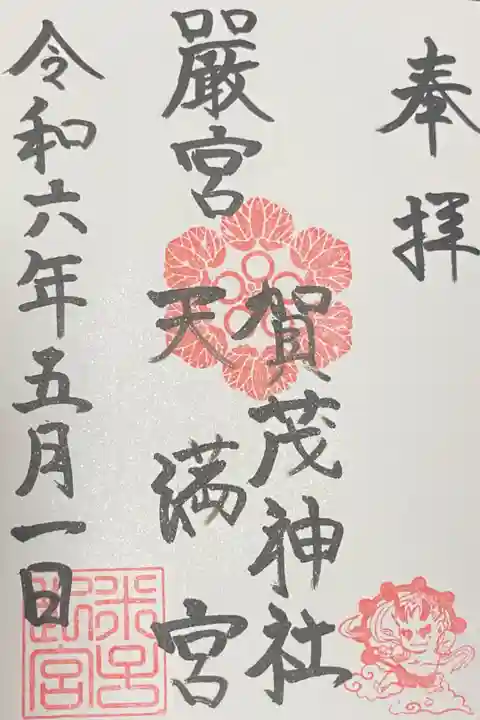 奉拝
賀茂神社
天満宮
嚴宮
令和六年五月一日
米子
嚴宮